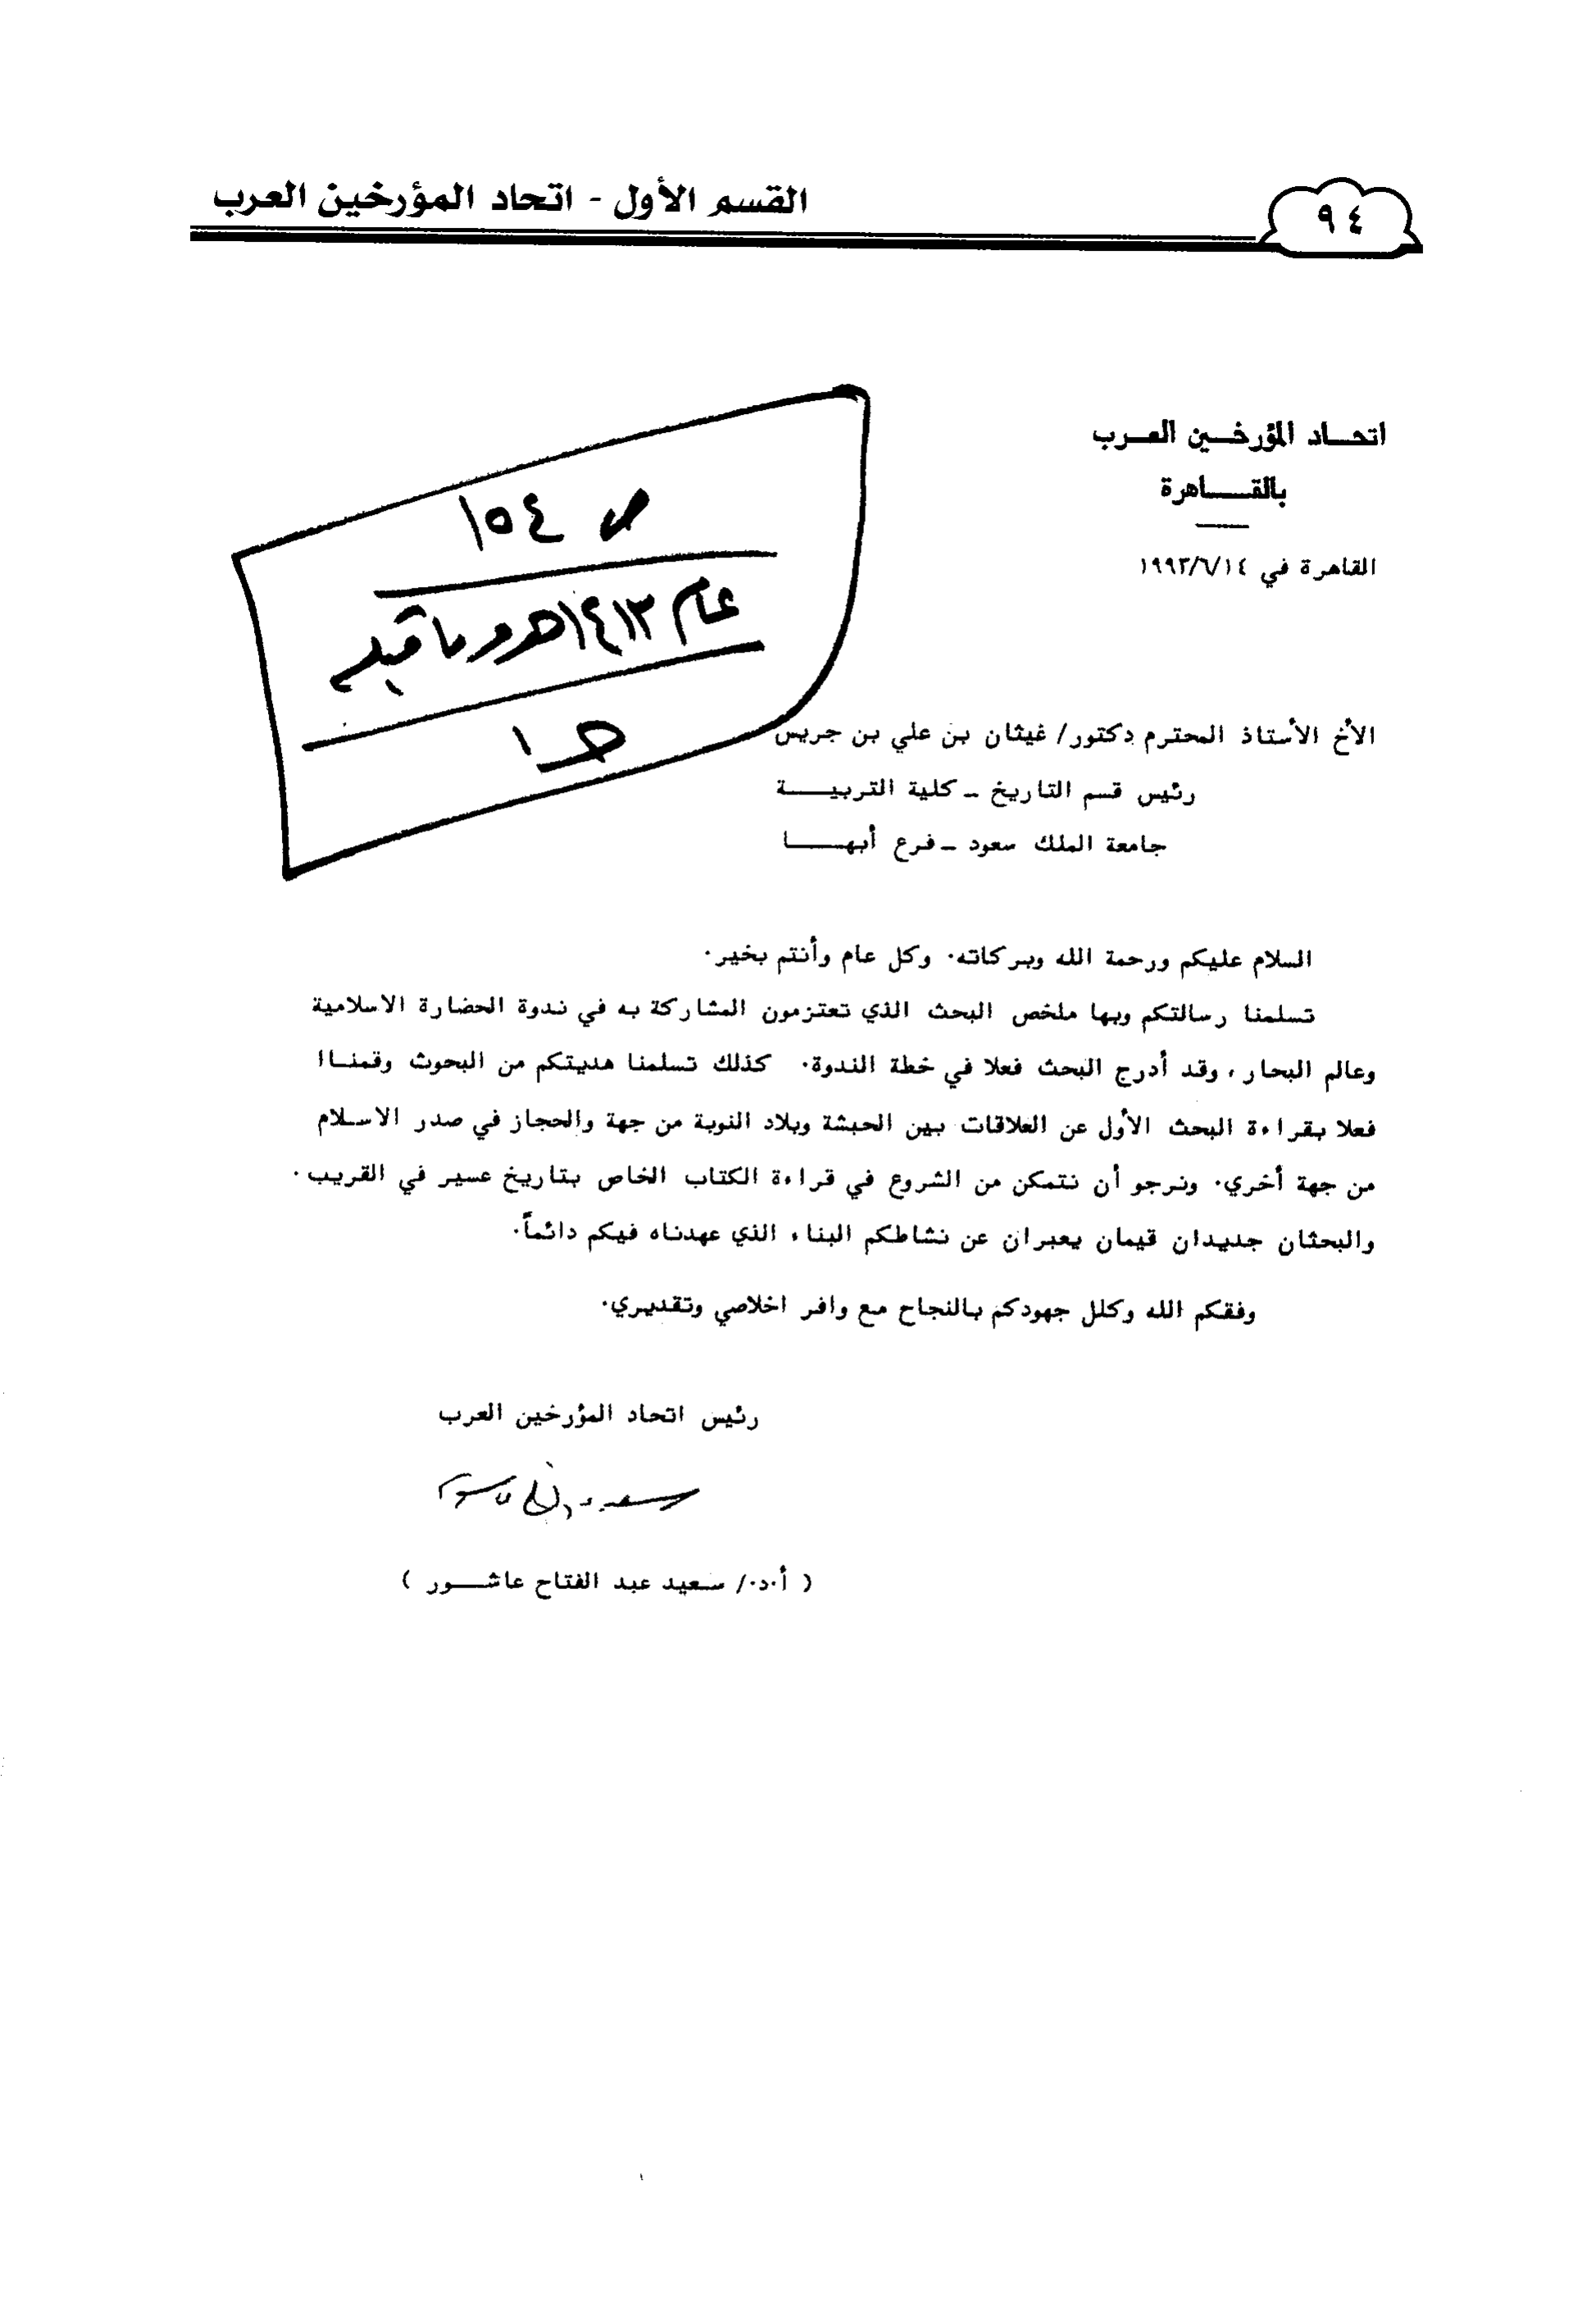 ٩٤
القسم الأول - اتحاد المؤرخين العرب
اتحاد المؤرخين العرب
بالقاهرة
القاهرة في ١٩٩٣/٦/١٤
ص ١٥٤
عام ١٤١٣هـ وما قبله
حـ ١
الأخ الأستاذ المحترم دكتور/ غيثان بن علي بن جريس
رئيس قسم التاريخ - كلية التربية
جامعة الملك سعود - فرع أبها
السلام عليكم ورحمة الله وبركاته. وكل عام وأنتم بخير.
تسلمنا رسالتكم وبها ملخص البحث الذي تعتزمون المشاركة به في ندوة الحضارة الاسلامية
وعالم البحار، وقد أدرج البحث فعلا في خطة الندوة. كذلك تسلمنا هديتكم من البحوث وقمناا
فعلا بقراءة البحث الأول عن العلاقات بين الحبشة وبلاد النوبة من جهة والحجاز في صدر الاسلام
من جهة أخري. ونرجو أن نتمكن من الشروع في قراءة الكتاب الخاص بتاريخ عسير في القريب.
والبحثان جديدان قيمان يعبران عن نشاطكم البناء الذي عهدناه فيكم دائماً.
وفقكم الله وكلل جهودكم بالنجاح مع وافر اخلاصي وتقديري.
رئيس اتحاد المؤرخين العرب
( أ.د./ سعيد عبد الفتاح عاشور )